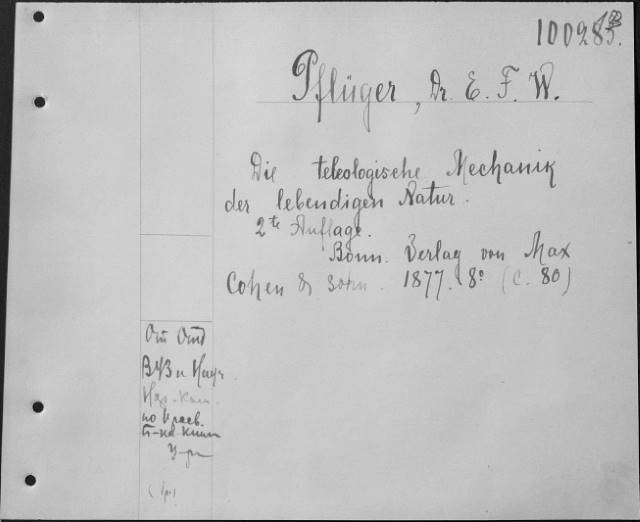 Pflüger, Dr. E. F. W.
Die teleologische Mechanik
der lebendigen Natur.
2te Auflage.
Bonn. Verlag von Max
Cohen & Sohn. 1877. 8° (C. 80)
От Отд
по Просв.